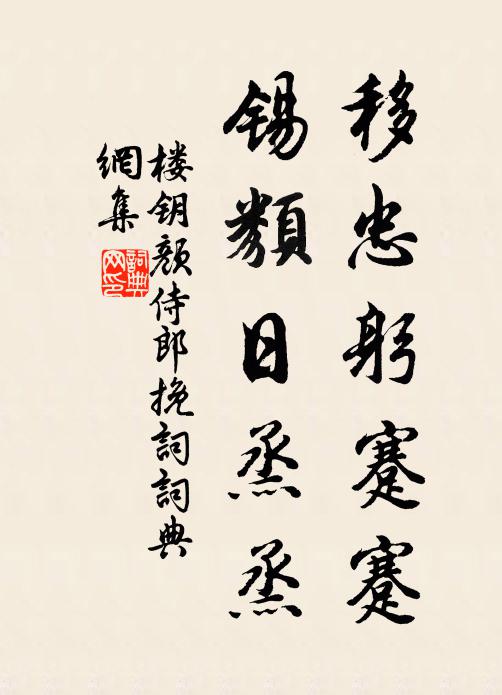 移忠躬蹇蹇
锡類日烝烝
楼钥颜侍郎挽詞詞典
網集
詞典
网印